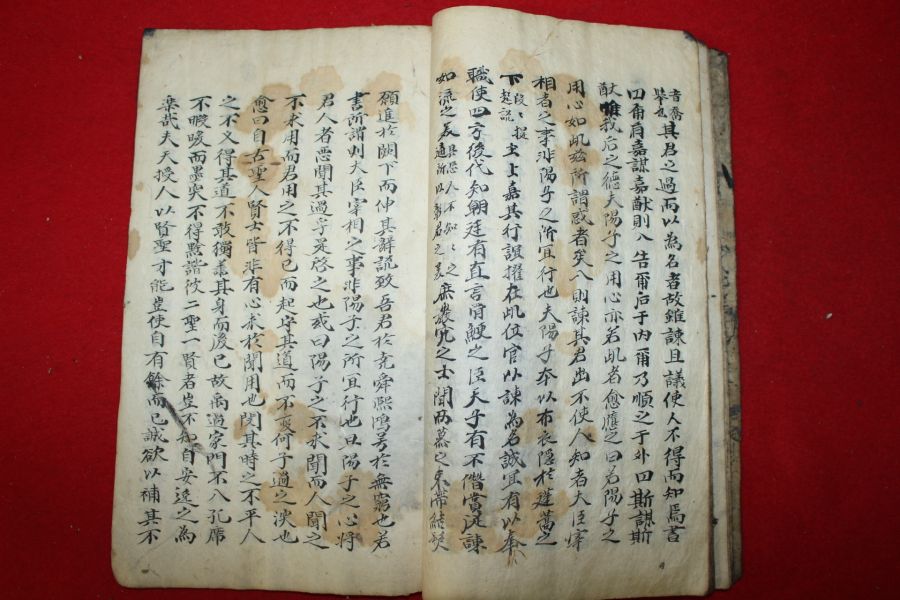 音喬舉也其君之過而以為名者故雖諫且議使人不得而知焉書
曰爾有嘉謀嘉猷則入告爾后于內爾乃順之于外曰斯謀斯
猷惟我后之德夫陽子之用心亦若此者愈應之曰若陽子之
用心如此玆所謂惑者矣入則諫其君出不使人知者大臣宰
相者之事非陽子之所宜行也夫陽子本以布衣隱於蓬蒿之
下段〻提起說主上嘉其行誼擢在此位官以諫為名誠宜有以奉
職使四方後代知朝廷有直言骨鯁之臣天子有不僭賞從諫
如流之美人不知〻之適所以君之美庶巖穴之士聞而慕之束帶結髮
願進於闕下而伸其辭說致吾君於堯舜熙鴻号於無窮也若
書所謂則大臣宰相之事非陽子之所宜行也且陽子之心將
君人者惡聞其過乎是啓之也或曰陽子之不求聞而人聞之
不求用而君用之不得已而起守其道而不變何子過之深也
愈曰自古聖人賢士皆非有心求於聞用也閔其時之不平人
之不乂得其道不敢獨善其身而後已故禹過家門不入孔席
不暇暖而墨突不得黔彼二聖一賢者豈不知自安逸之為
樂哉夫天授人以賢聖才能豈使自有餘而已誠欲以補其不